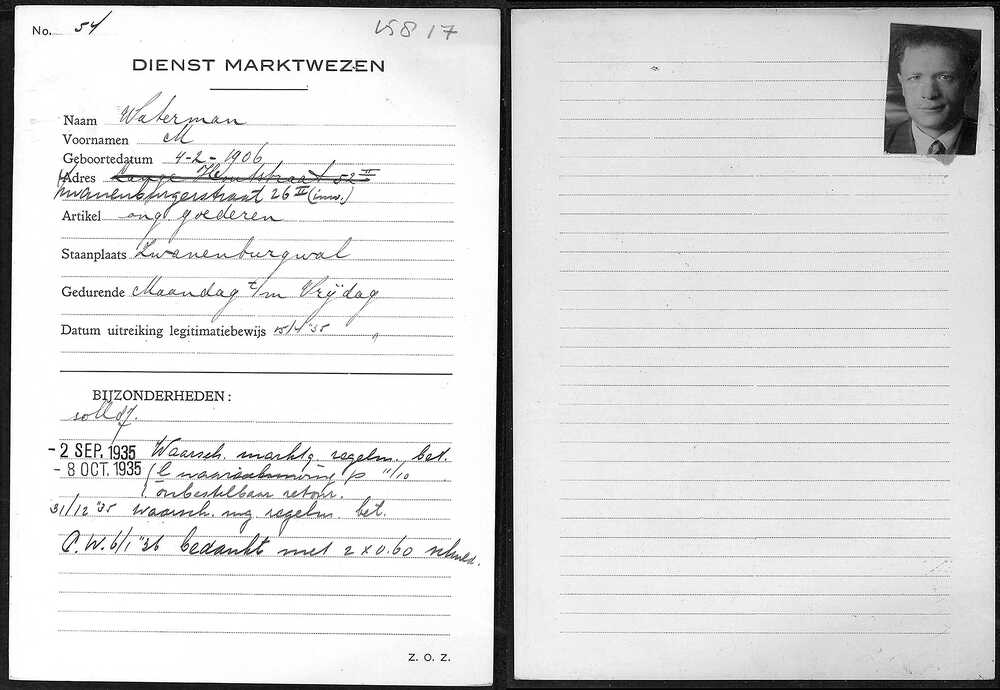 No. 54
15817
DIENST MARKTWEZEN
Naam Waterman
Voornamen M
Geboortedatum 4-2-1906
Adres Lange Houtstraat 52 II
Zwanenburgerstraat 26 II (inw.)
Artikel ong. goederen
Staanplaats Zwanenburgwal
Gedurende Maandag t/m Vrijdag
Datum uitreiking legitimatiebewijs 15/4 '35
BIJZONDERHEDEN:
- 2 SEP. 1935 Waarsch. marktg. regelm. bet.
- 8 OCT. 1935 p 11/10
onbestelbaar retour.
31/12 '35 Waarsch. mg regelm. bet.
P.W. 6/1 '36 bedankt met 2 x 0.60 schuld.
Z. O. Z.